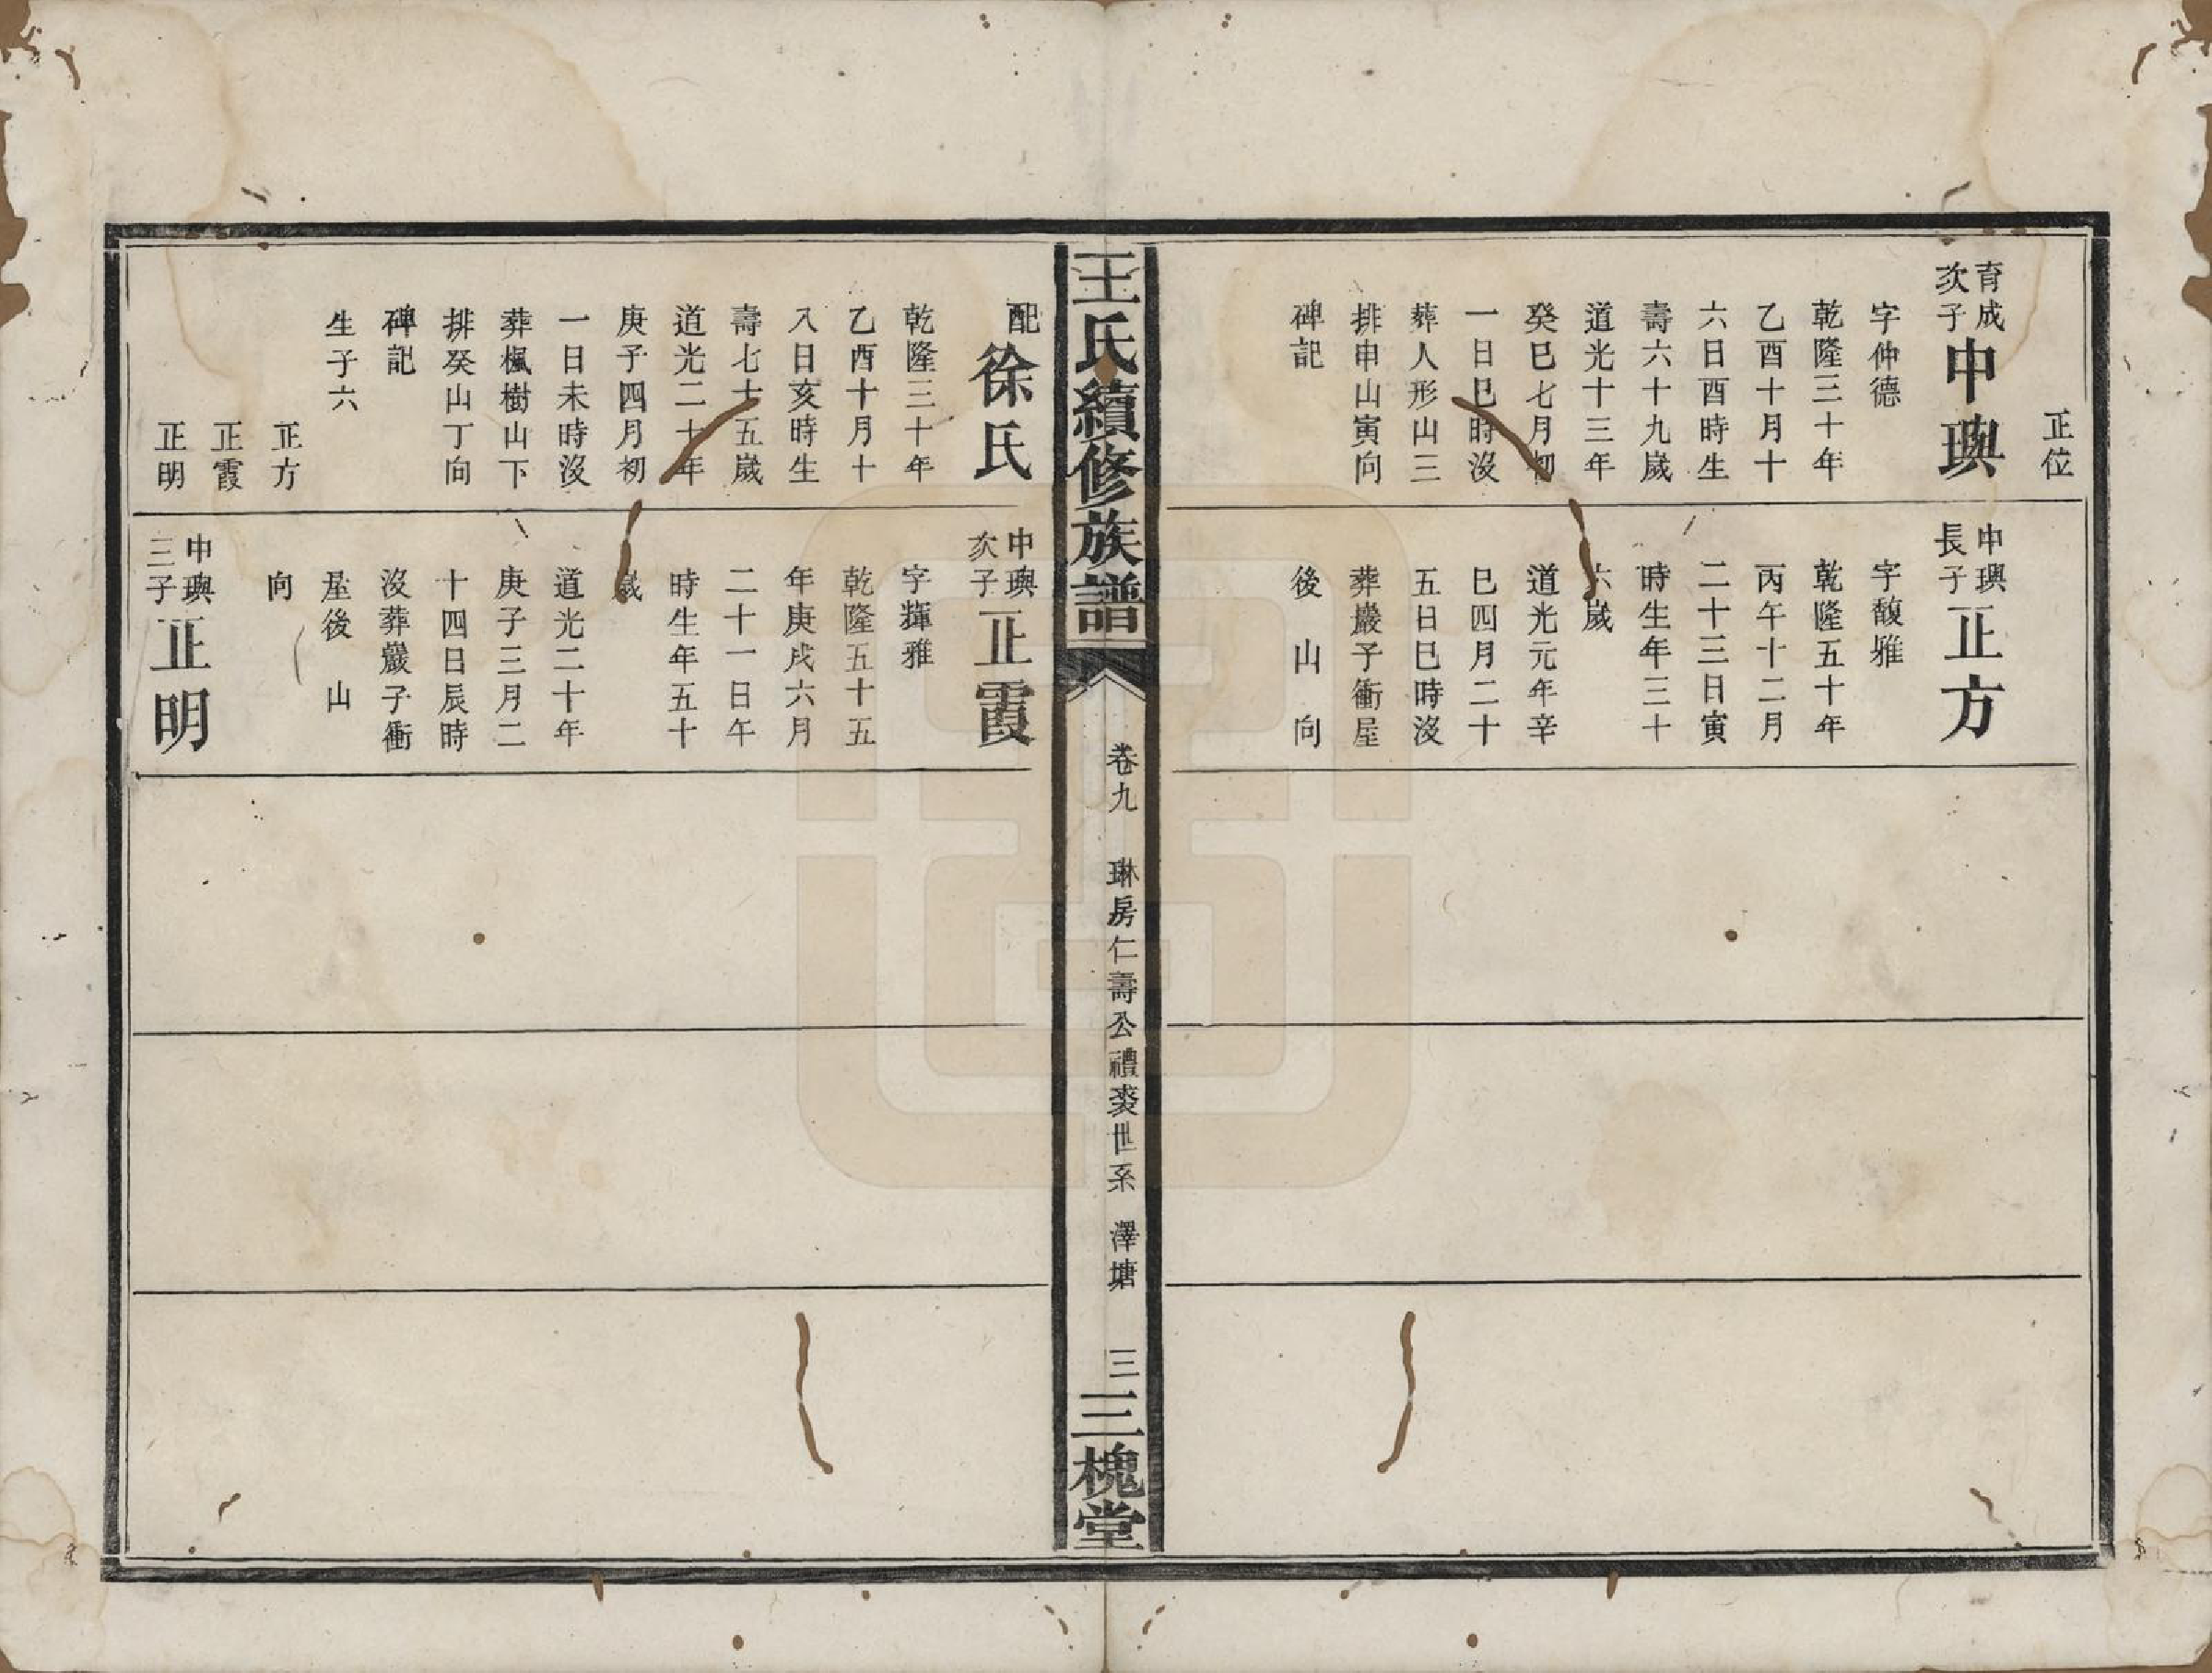 正位
育成
次子
中璵
字仲德
乾隆三十年
乙酉十月十
六日酉時生
壽六十九歲
道光十三年
癸巳七月初
一日巳時沒
葬人形山三
排申山寅向
碑記
中璵
長子
正方
字馥雅
乾隆五十年
丙午十二月
二十三日寅
時生年三十
六歲
道光元年辛
巳四月二十
五日巳時沒
葬巖子衝屋
後 山 向
王氏續修族譜
卷九 琳房仁壽公禮裘世系 澤塘 三
三槐堂
配徐氏
乾隆三十年
乙酉十月十
八日亥時生
壽七十五歲
道光二十年
庚子四月初
一日未時沒
葬楓樹山下
排癸山丁向
碑記
生子六
正方
正霞
正明
中璵
次子
正霞
字輝雅
乾隆五十五
年庚戌六月
二十一日午
時生年五十
歲
道光二十年
庚子三月二
十四日辰時
沒葬巖子衝
屋後 山
向
中璵
三子
正明